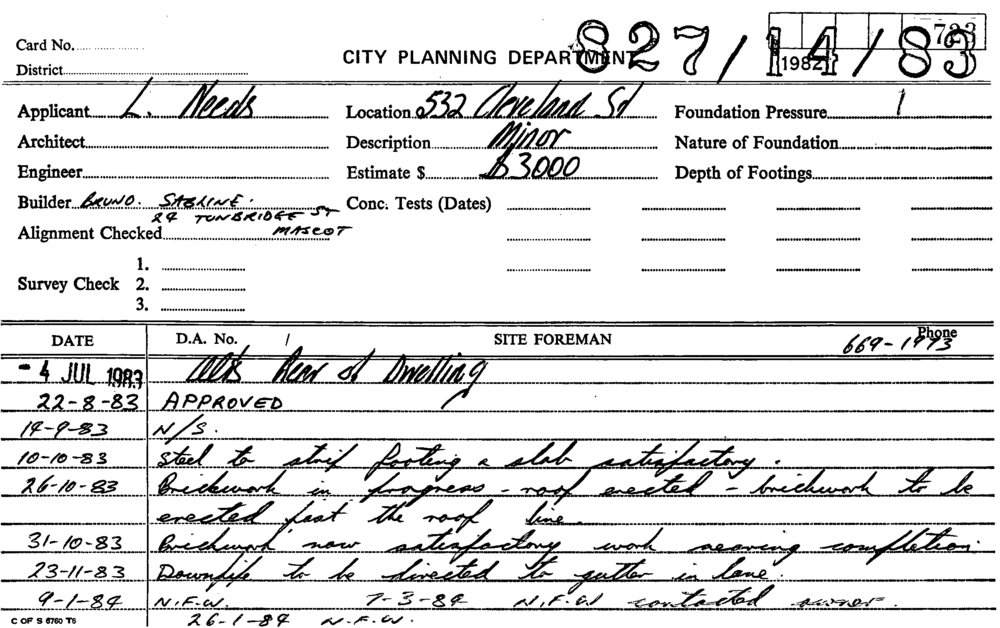 723
Card No.
CITY PLANNING DEPARTMENT 827/14/83
1982
District
Applicant L. Needs Location 532 Cleveland St Foundation Pressure
Architect Description Minor Nature of Foundation
Engineer Estimate $ $3000 Depth of Footings
Builder BRUNO. Conc. Tests (Dates)
TUNBRIDGE ST
Alignment Checked MASCOT
1.
Survey Check 2.
3.
DATE D.A. No. / SITE FOREMAN Phone
669-1993
- 4 JUL 1983 Alts Rear of Dwelling
22-8-83 APPROVED
14-9-83 N/S.
10-10-83 Steel to strip footing & slab satisfactory.
26-10-83 Brickwork in progress - roof erected - brickwork to be
erected past the roof line.
31-10-83 Brickwork now satisfactory work nearing completion.
23-11-83 Downpipe to be directed to gutter in lane.
9-1-84 N.F.W. 7-3-84 N.F.W contacted owner.
C OF S 6760 T6 26-1-84 N.F.W.